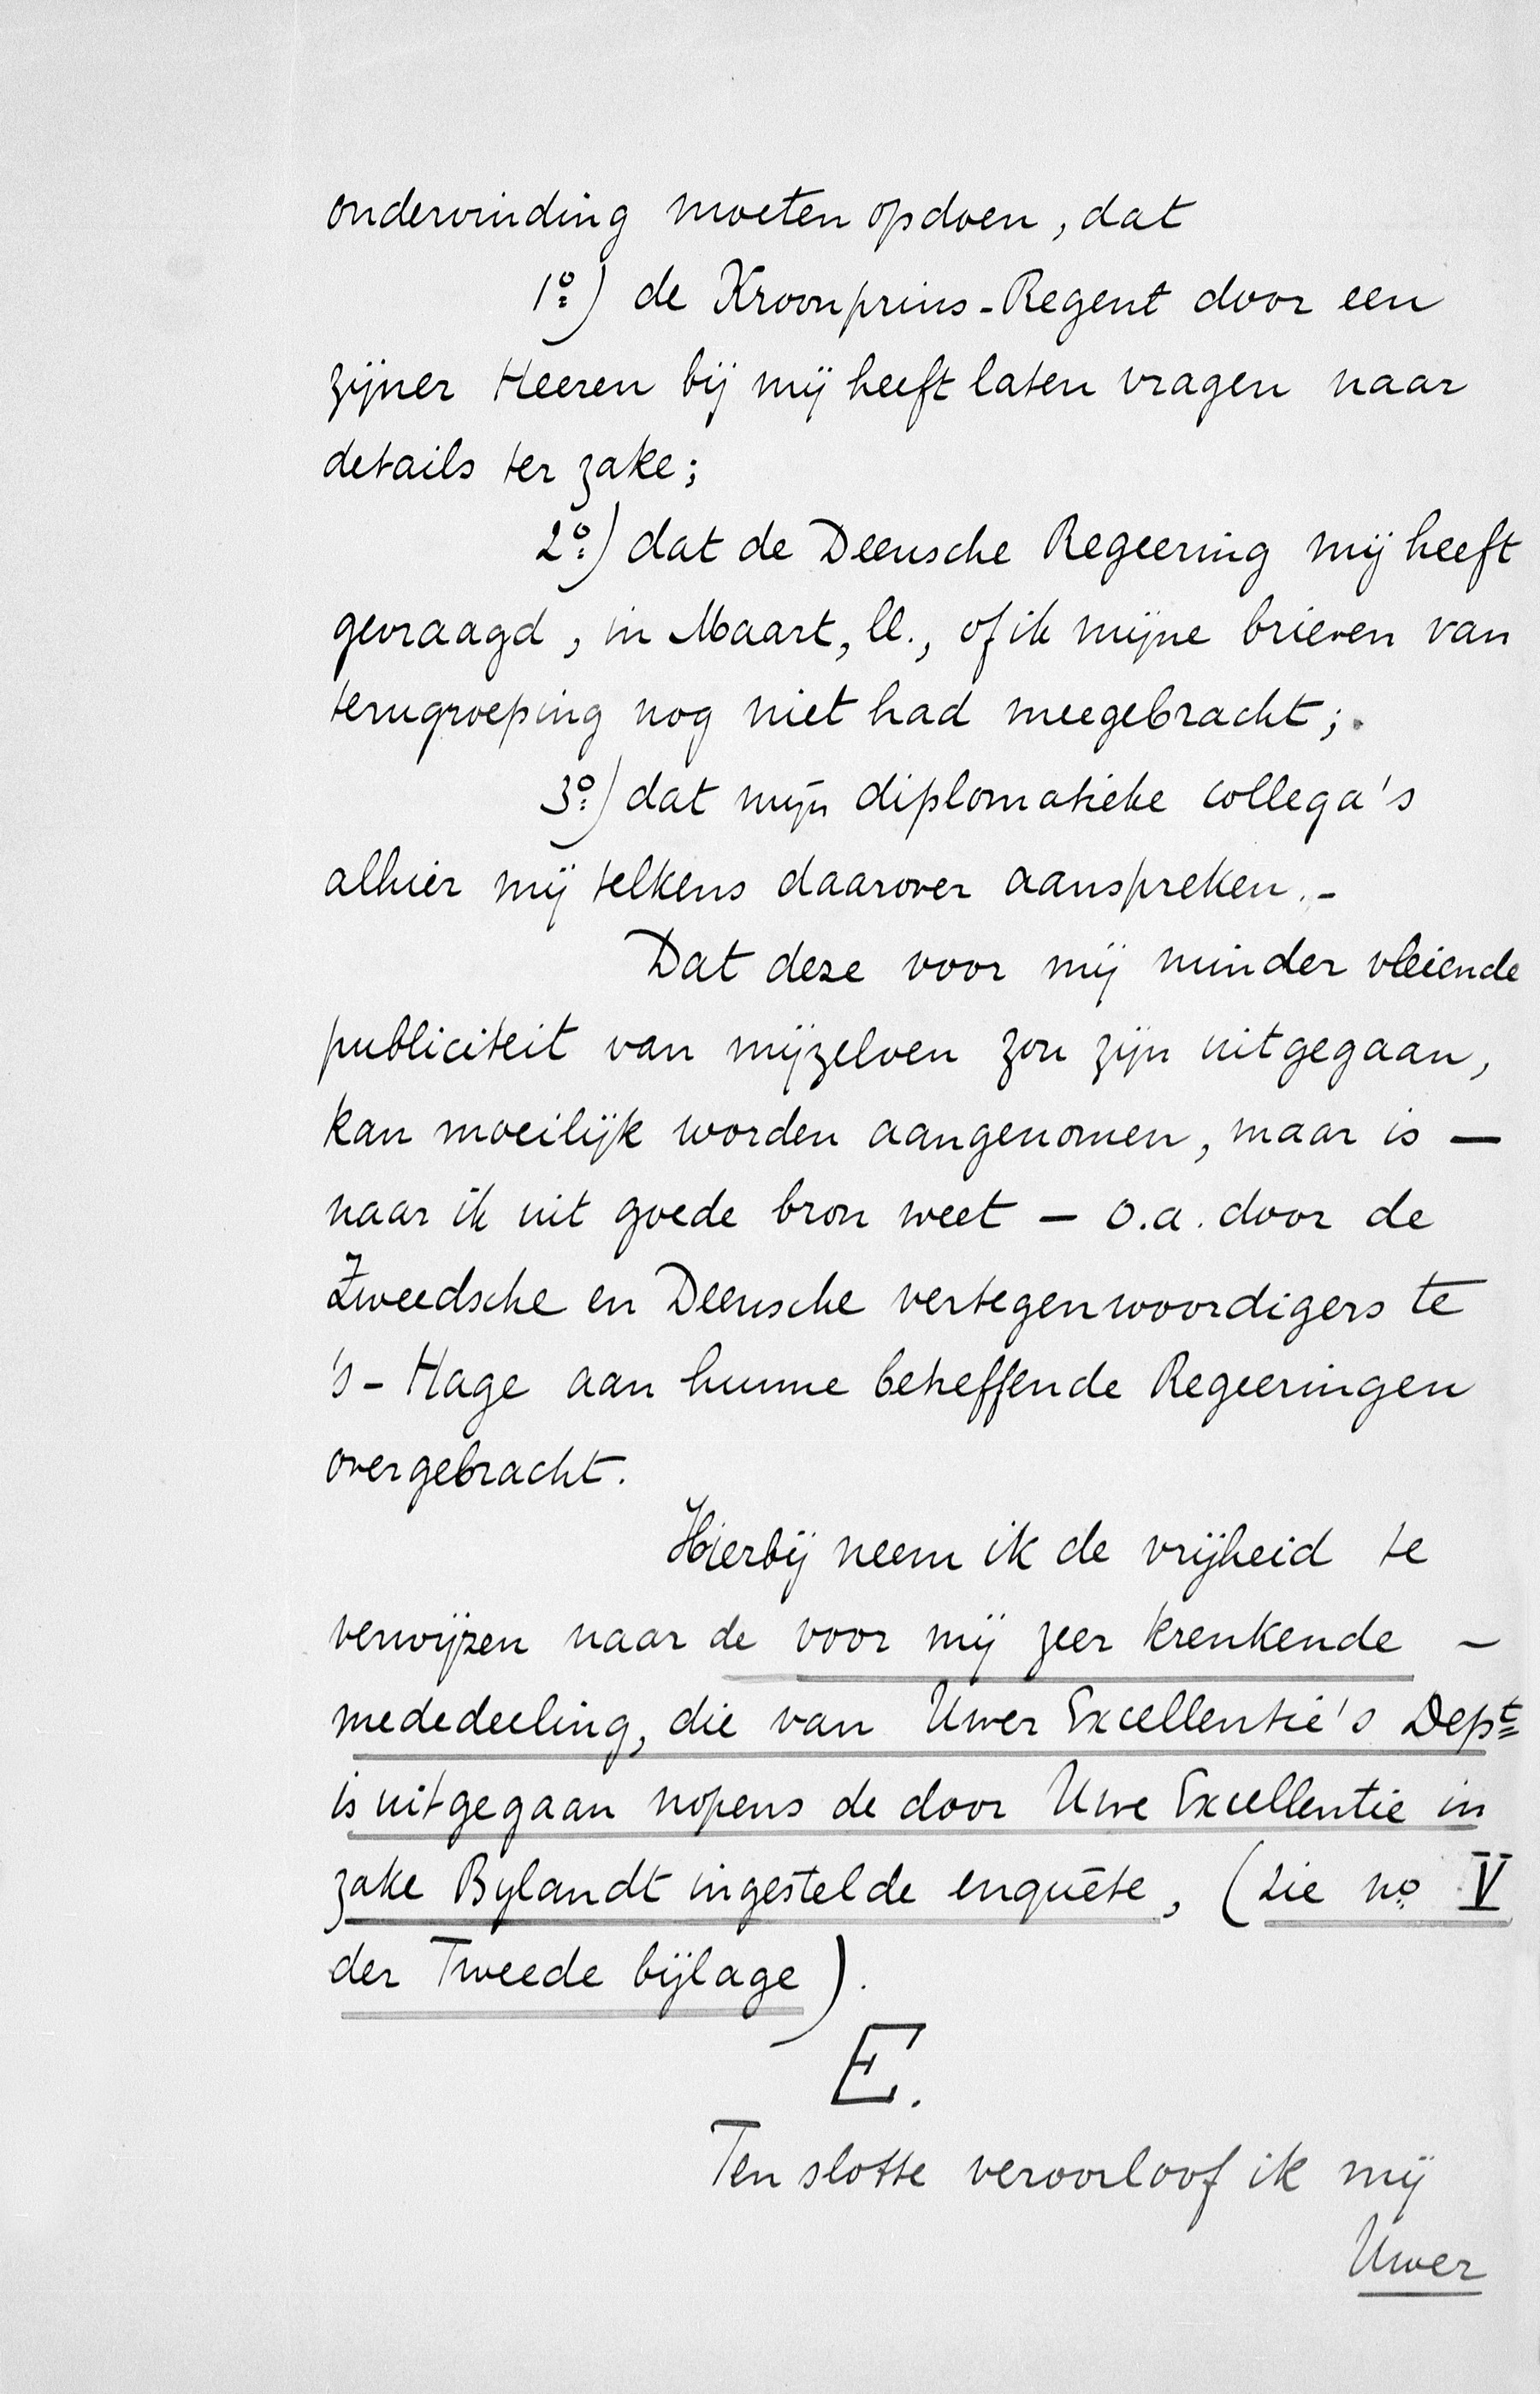 ondervinding moeten opdoen, dat
1o) de Kroonprins-Regent door een
zijner Heeren bij mij heeft laten vragen naar
details ter zake;
2o) dat de Deensche Regeering mij heeft
gevraagd, in Maart, ll., of ik mijne brieven van
terugroeping nog niet had meegebracht;
3o) dat mijn diplomatieke collega's
alhier mij telkens daarover aanspreken.-
Dat deze voor mij minder vleiende
publiciteit van mijzelven zou zijn uitgegaan,
kan moeilijk worden aangenomen, maar is —
naar ik uit goede bron weet — o.a. door de
Zweedsche en Deensche vertegenwoordigers te
's-Hage aan hunne betreffende Regeeringen
overgebracht.
Hierbij neem ik de vrijheid te
verwijzen naar de voor mij zeer krenkende -
mededeeling, die van Uwer Excellentie's Dept
is uitgegaan nopens de door Uwe Excellentie in
zake Bylandt ingestelde enquête, (zie no V
der Tweede bijlage).
E.
Ten slotte veroorloof ik mij
Uwer